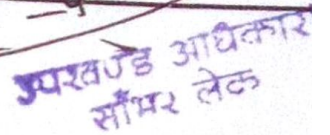 उपखण्ड अधिकार
साँभर लेक